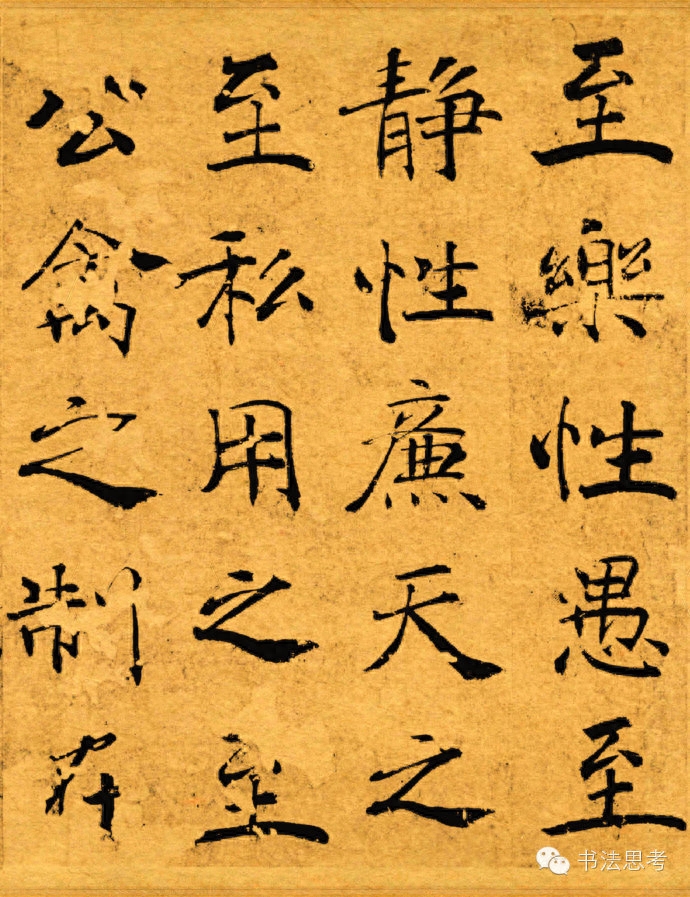 至樂性愚至
靜性廉天之
至私用之至
公禽之制在
书法思考